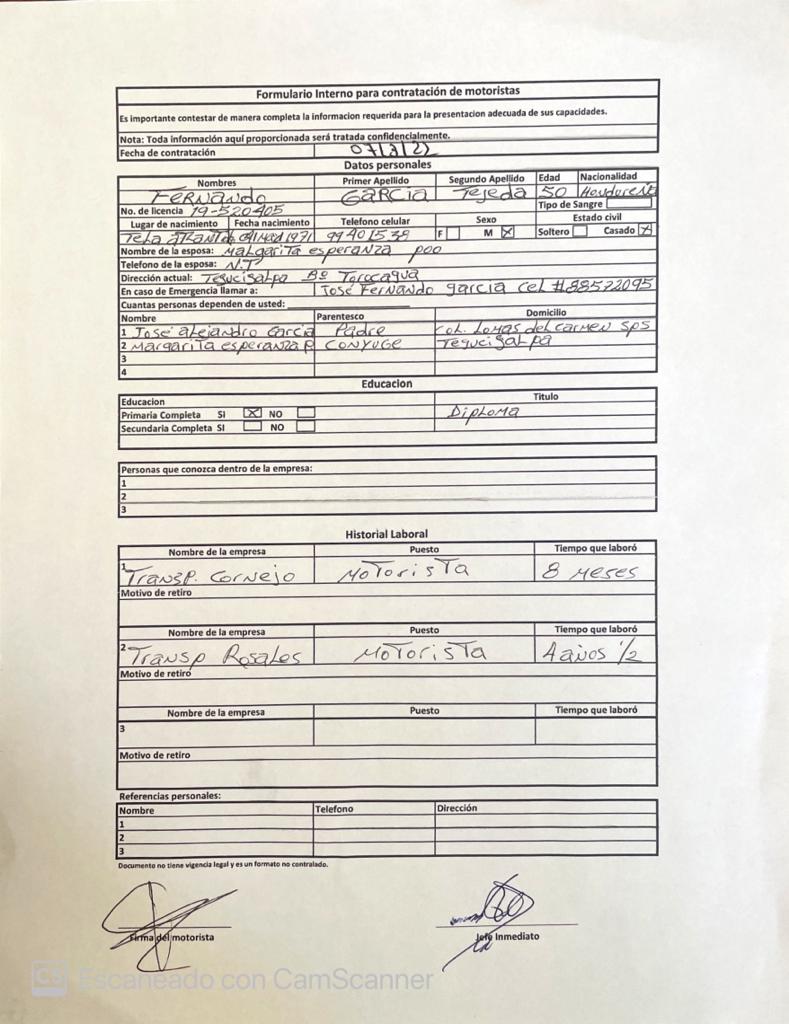 Formulario Interno para contratación de motoristas
Es importante contestar de manera completa la informacion requerida para la presentacion adecuada de sus capacidades.
Nota: Toda información aquí proporcionada será tratada confidencialmente.
Fecha de contratación 07/3/22
Datos personales
Nombres Primer Apellido Segundo Apellido Edad Nacionalidad
Fernando Garcia Tejeda 50 Hondureña
No. de licencia 19-520405 Tipo de Sangre
Lugar de nacimiento Fecha nacimiento Telefono celular Sexo Estado civil
Tela 1971 99401538 F M X Soltero Casado X
Nombre de la esposa: Malgarita esperanza poo
Telefono de la esposa: N.T
Dirección actual: Tegucigalpa Bº Torocagua
En caso de Emergencia llamar a: José Fernando garcia cel #88572095
Cuantas personas dependen de usted:
Nombre Parentesco Domicilio
1 José alejandro Garcia Padre col. Lomas del carmen SPS
2 Margarita esperanza P CONYUGE Tegucigalpa
3
4
Educacion
Educacion Titulo
Primaria Completa SI X NO Diploma
Secundaria Completa SI NO
Personas que conozca dentro de la empresa:
1
2
3
Historial Laboral
Nombre de la empresa Puesto Tiempo que laboró
1 Transp. Cornejo Motorista 8 meses
Motivo de retiro
Nombre de la empresa Puesto Tiempo que laboró
2 Transp Rosales Motorista 4 años 1/2
Motivo de retiro
Nombre de la empresa Puesto Tiempo que laboró
3
Motivo de retiro
Referencias personales:
Nombre Telefono Dirección
1
2
3
Documento no tiene vigencia legal y es un formato no contralado.
Firma del motorista Jefe Inmediato
CS Escaneado con CamScanner